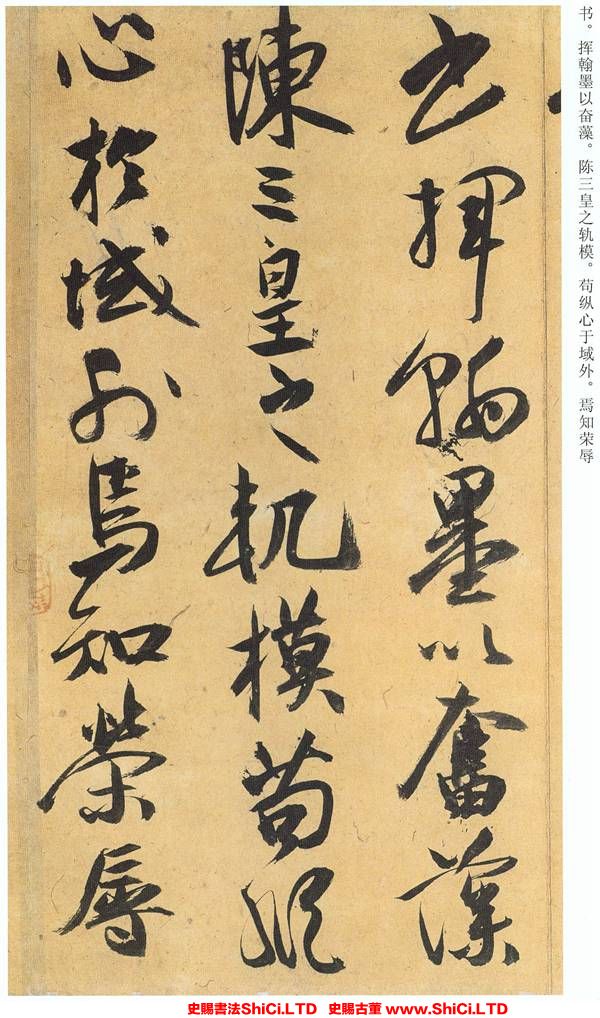 书。挥翰墨以奋藻。陈三皇之轨模。苟纵心于域外。焉知荣辱
書揮翰墨以奮藻
陳三皇之軌模苟縱
心於域外焉知榮辱
史賜書法ShiCi.LTD 史賜古董 www.ShiCi.LTD